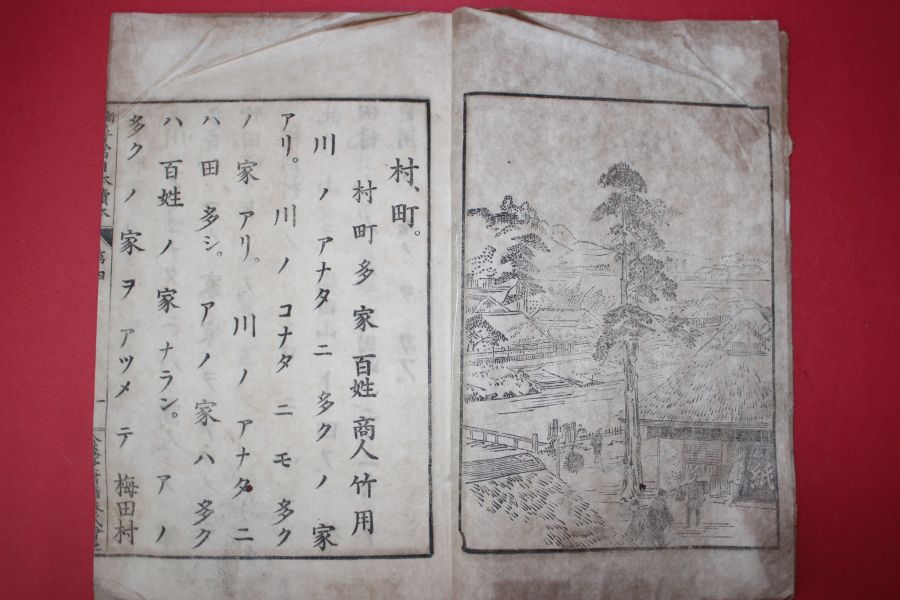 村、町。
村町多家百姓商人竹用
川ノアナタニ多クノ家
アリ。川ノコナタニモ多ク
ノ家アリ。川ノアナタニ
ハ田多シ。アノ家ハ多ク
ハ百姓ノ家ナラン。アノ
多クノ家ヲアツメテ梅田村
讀本 第四
一
紙